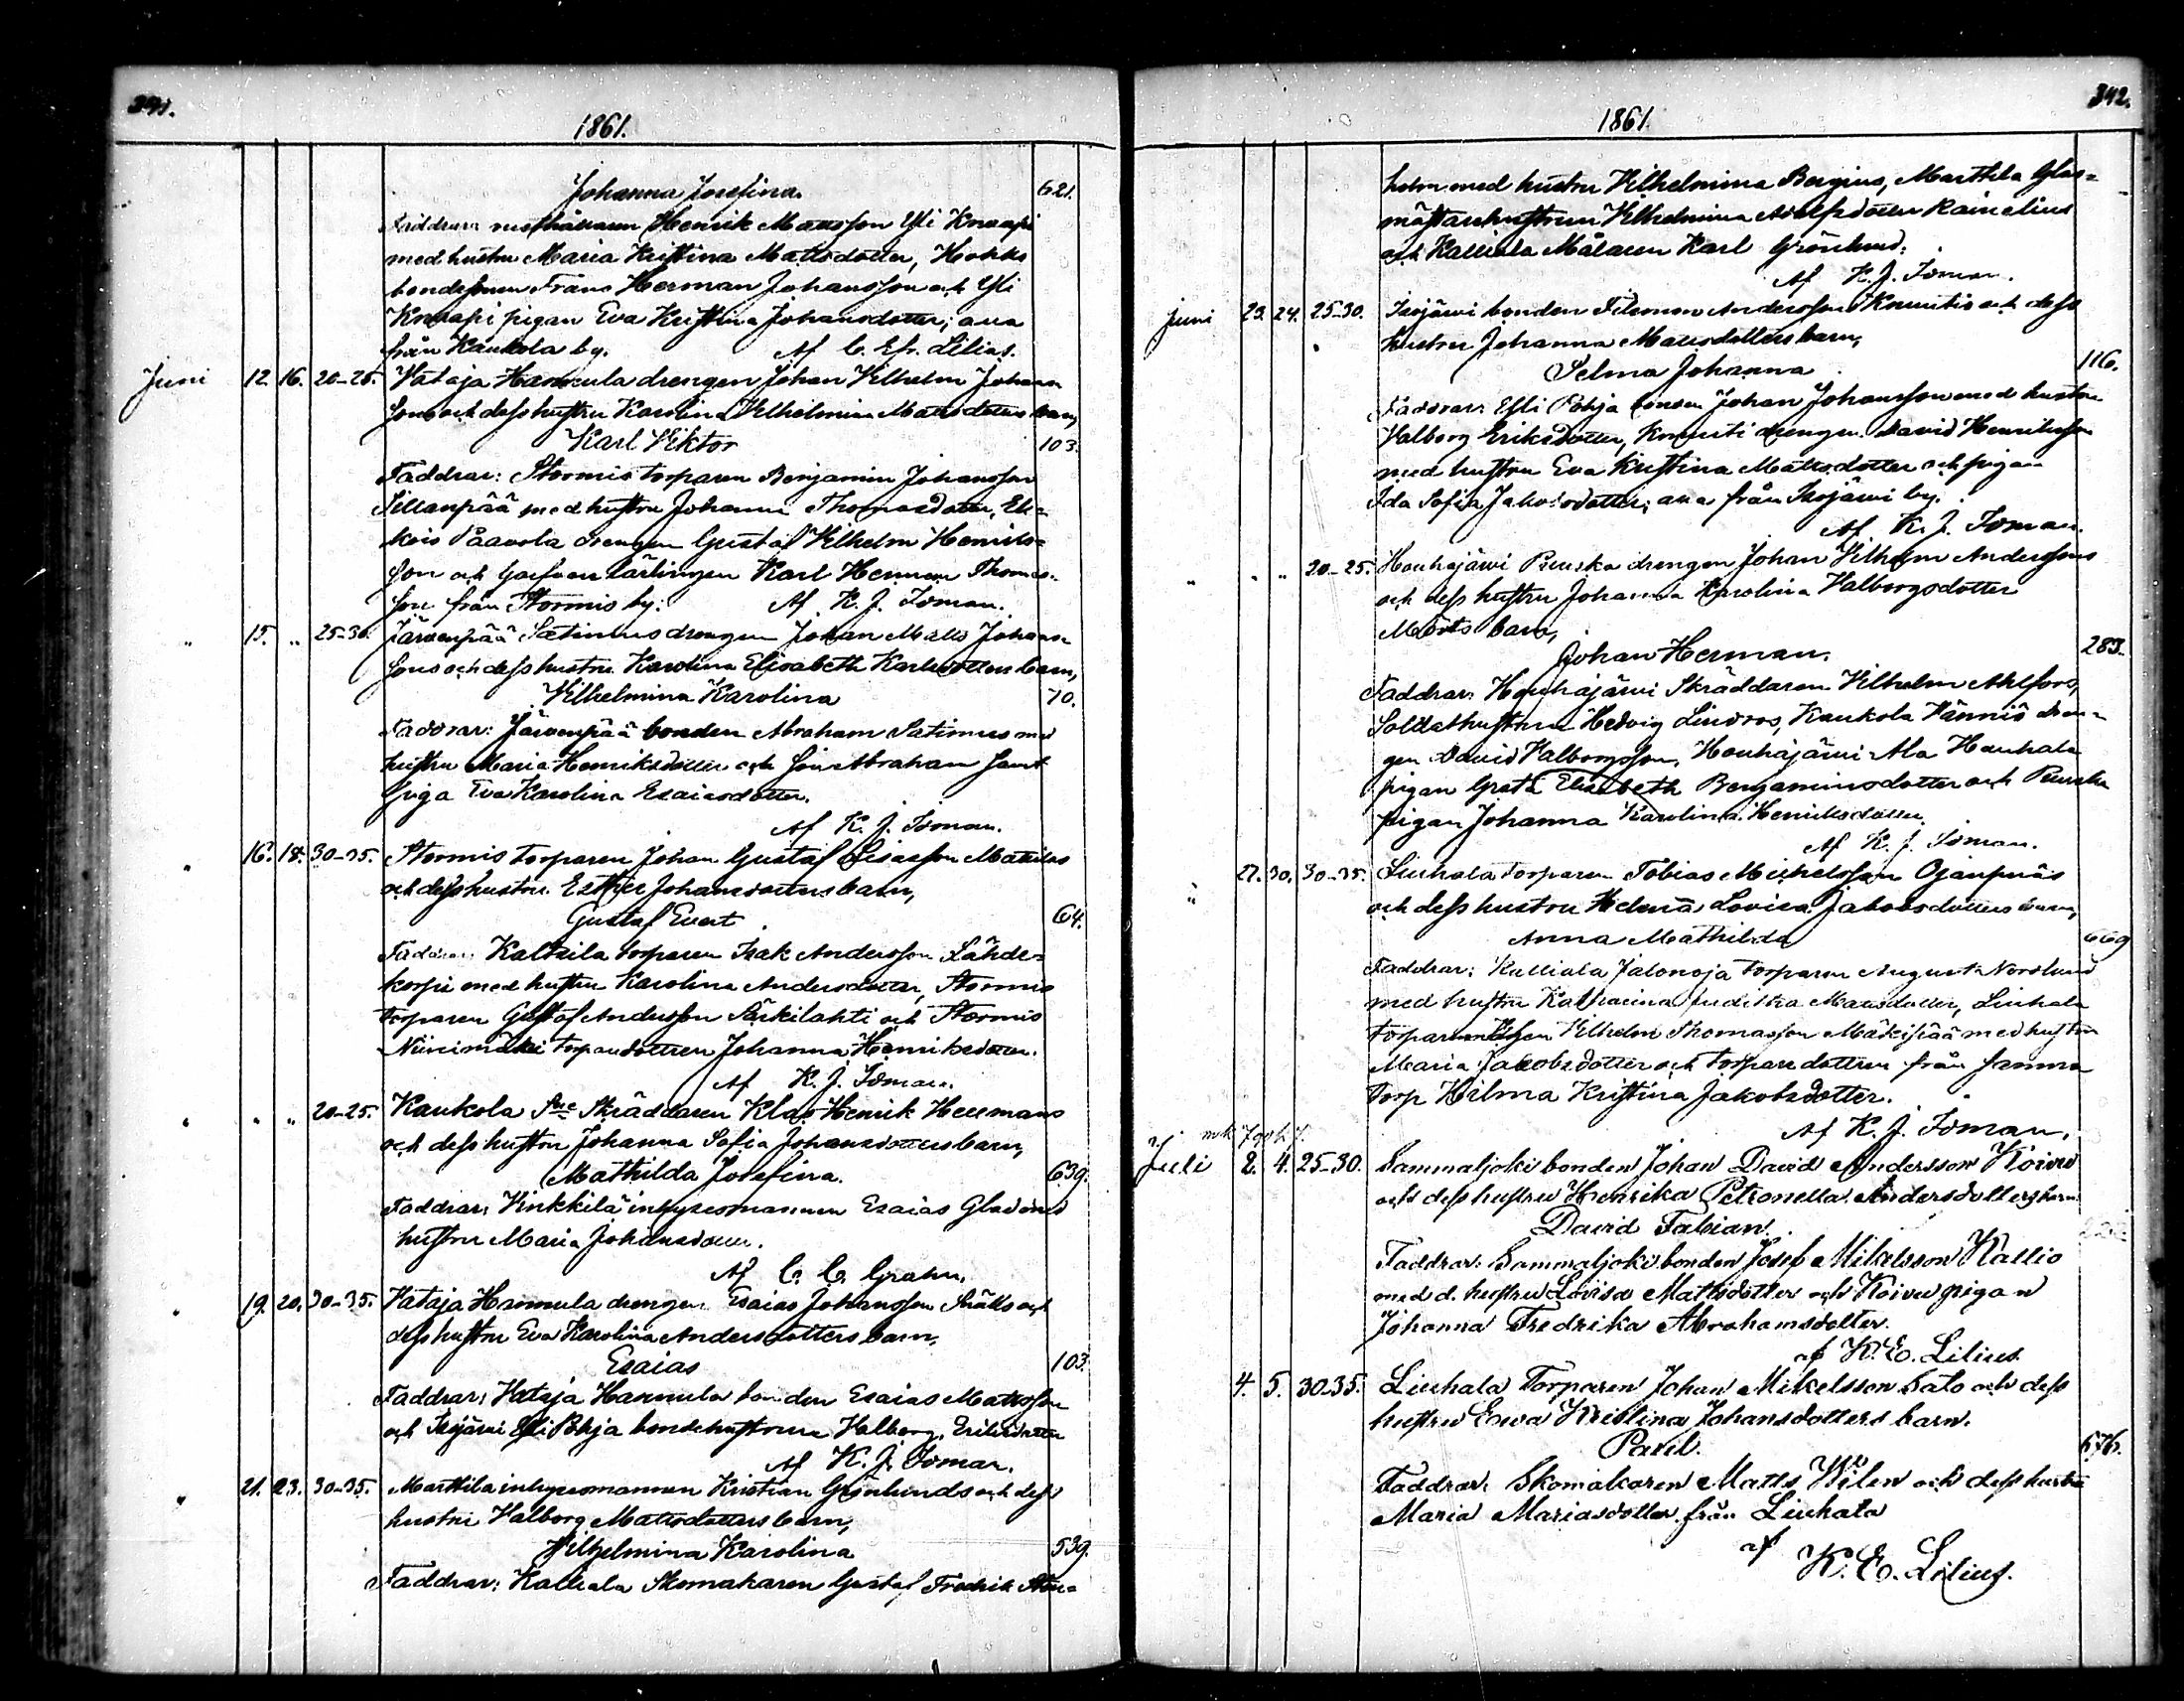 341.
1861.
Johanna Josefina. 621.
Faddrar: rusthållaren Henrik Matsson Yli Knaapi
med hustru Maria Kristina Mattsdotter, Hokka
bondesonen Frans Herman Johansson och Yli
Knaapi pigan Eva Kristina Johansdotter; alla
från Kaukola by. Af C. Efr. Lilius.
Juni 12. 16. 20-25. Vataja Hannula drengen Johan Vilhelm Johans
sons och dess hustru Karolina Vilhelmina Mattsdotters barn,
Karl Viktor 103.
Faddrar: Stormis torparen Benjamin Johansson
Sillanpää med hustru Johanna Thomasdotter,
Paavola drengen Gustaf Vilhelm Henriks-
son och lärlingen Karl Herman Thomas-
son från Stormis by. Af K. J. Toman.
" 15. " 25-30. Järvenpää Satimus drengen Johan Matts Johans-
sons och dess hustru Karolina Elisabeth Karlsdotters barn,
Vilhelmina Karolina 70.
Faddrar: Järvenpää bonden Abraham Satimus med
hustru Maria Henriksdotter och son Abraham samt
piga Eva Karolina Esaiasdotter.
Af K. J. Toman.
" 16. 18. 30-35. Stormis torparen Johan Gustaf Mattilas
och dess hustru Esther Johansdotters barn,
Gustaf Evert 64.
Faddrar: Kaltsila torparen Isak Andersson Lähde-
korpi med hustru Karolina Andersdotter, Stormis
torparen Gustaf Andersson Särkilahti och Stormis
Niinimäki torpardottren Johanna Henriksdotter.
Af K. J. Toman.
" " " 20-25. Kaukola Skräddaren Klas Henrik Hermans
och dess hustru Johanna Sofia Johansdotters barn,
Mathilda Josefina. 639.
Faddrar: Kinkkilä inhysesmannen Esaias Glad och
hustru Maria Johansdotter.
Af C. C. Grahn.
" 19. 20. 30-35. Vataja Hannula drengen Esaias Johansson och
dess hustru Eva Karolina Andersdotters barn,
Esaias 103.
Faddrar: Vataja Hannula bonden Esaias Matsson
och Isojärvi Yli Pohja bondehustrun Valborg Eriksdotter
Af K. J. Toman.
" 21. 23. 30-35. Marttila inhysesmannen Kristian Grönlunds och dess
hustru Valborg Mattsdotters barn,
Vilhelmina Karolina 539.
Faddrar: Kalliala Skomakaren Gustaf Fredrik
342.
1861.
holm med hustru Vilhelmina Bergius, Marttila Glas-
mästarehustrun Vilhelmina Adolfsdotter Rainelius
och Kalliala Målaren Karl Grönlund.
Af K. J. Toman.
Juni 23. 24. 25-30. Isojärvi bonden Filemon Andersson Knuutis och dess
hustru Johanna Mattsdotters barn,
Selma Johanna 116.
Faddrar: Yli Pohja bonden Johan Johansson med hustru
Valborg Eriksdotter, Knuuti drengen David Henriksson
med hustru Eva Kristina Mattsdotter och pigan
Ida Sofia Jakobsdotter; alla från Isojärvi by.
Af K. J. Toman.
" " " 20-25. Houhajärvi Peuska drengen Johan Vilhelm Anderssons
och dess hustru Johanna Karolina Valborgsdotter
Mörts barn,
Johan Herman. 283.
Faddrar: Houhajärvi Skräddaren Vilhelm Ahlfors,
Soldathustrun Hedvig Lindroos, Kaukola Vänniö dren-
gen David Valborgsson, Houhajärvi Ala Hauhala
pigan Greta Elisabeth Benjaminsdotter och Peuska
pigan Johanna Karolina Henriksdotter.
Af K. J. Toman.
" 27. 30. 30-35. Liuhala torparen Tobias Michelsson Ojanpääs
och dess hustru Helena Lovisa Jakobsdotters barn,
Anna Mathilda 669
Faddrar: Kalliala Jalonoja torparen August Norrlund
med hustru Katharina Fredrika Mattsdotter, Liuhala
Vilhelm Thomasson Mäkipää med hustru
Maria Jakobsdotter och torparedottren från samma
torp Hilma Kristina Jakobsdotter.
Af K. J. Toman.
Juli 2. 4. 25-30. Sammaljoki bonden Johan David Andersson Koivu
och dess hustru Henrika Petronella Andersdotters barn
David Fabian.
Faddrar: Sammaljoki bonden Josef Mikelsson Kallio
med d. hustru Lovisa Mattsdotter och Koivu pigan
Johanna Fredrika Abrahamsdotter.
af K. E. Lilius.
4. 5. 30-35. Liuhala Torparen Johan Mikelsson Salo och dess
hustru Ewa Kristina Johansdotters barn.
Pavel. 676.
Faddrar: Skomakaren Matts Wilen och dess hustru
Maria Mariasdotter från Liuhala
af K. E. Lilius.